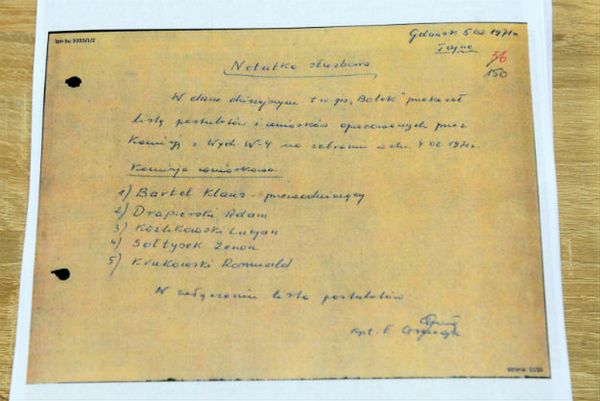 Gdańsk 5.02.1971r
Tajne
Notatka służbowa
150
W dniu dzisiejszym t.w. ps. „Bolek" przekazał
listę postulatów i wniosków opracowanych przez
Komisję z Wydz W-4 na zebraniu w dniu 4.02.1971r.
Komisja wnioskowa:
1) Bartel Klaus - przewodniczący
2) Drapierski Adam
3) Kozlikowski Lucjan
4) Sołtysek Zenon
5) Krukowski Romuald
W załączeniu lista postulatów
Kpt. E.